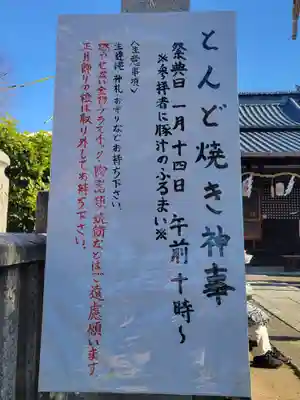 とんど焼き神事
祭典日 一月十四日 午前十時~
※参拝者に豚汁のふるまい※
〈注意事項〉
注連縄 神札 お守りなどお持ち下さい。
燃やせない金物 プラスチック 陶器類 紙筒などはご遠慮願います。
正月飾りの橙は取り外してお持ち下さい。